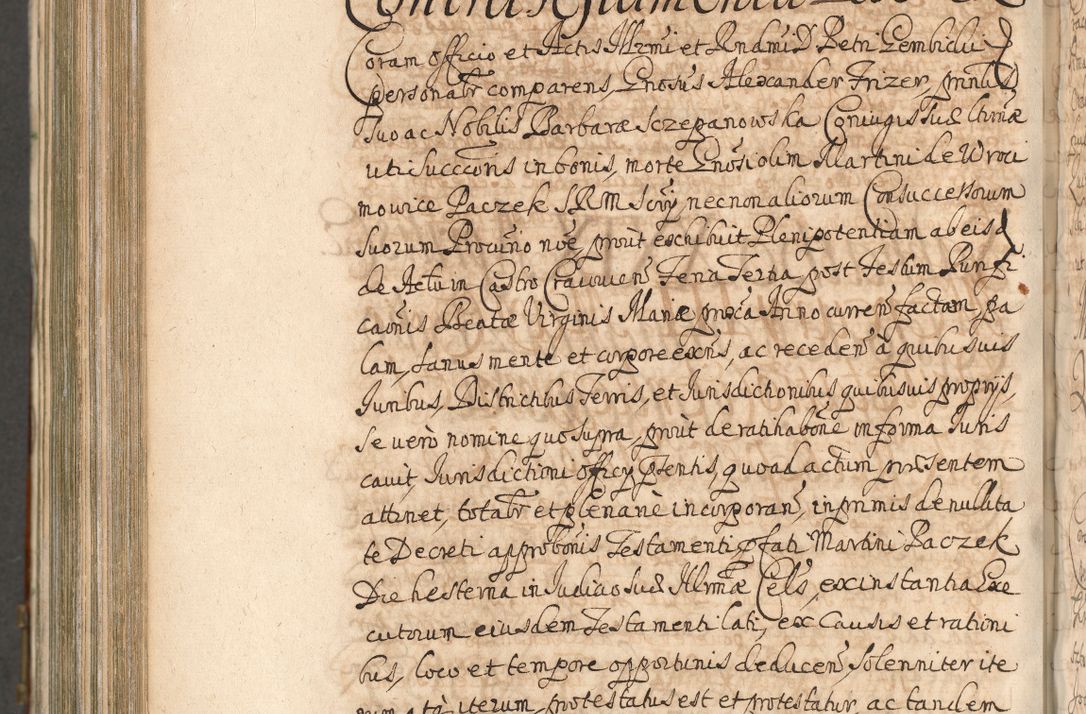 Contra Testamentum
Coram officio et Actis Illrmi et Rndmi D Petri Gembicki
personalr comparens, Gnosus Alexander Frizer, prinli
suo ac Nobilis Barbaræ Sczepanowska Coniugis suæ ltimæ
uti succoris in bonis, morte Gnosi olim Martini de Wroci
mowice Paczek SRM Scrÿ, necnon aliorum Consuccessorum
suorum Procurio noe, prout exhibuit Plenipotentiam ab eisd
de Actu in Castro Cracovien Feria Tertia post Festum Purifi
caonis Beatæ Virginis Mariæ proxa Anno curren factam, pa
lam, sanus mente et corpore exns, ac receden à quibusuis
Iuribus, Districtibus Terris, et Iurisdictionibus quibusuis proprÿs,
se verò nomine quo supra, prout de ratihabone in forma Iuris
cauit, Iurisdictioni officÿ pntis, quoad actum præsentem
attinet, totalr et plenariè incorporan, inprimis de nullita
te Decreti approbonis Testamenti pfati Martini Paczek
Die hesterna in Iudicio suæ Illrmæ Cels, ex instantia Exe
cutorum eiusdem Testamenti lati, ex Causis et rationi
bus, loco et tempore opportunis deducen, solenniter ite
rum atq iterum, protestatus est et protestatur, ac tandem